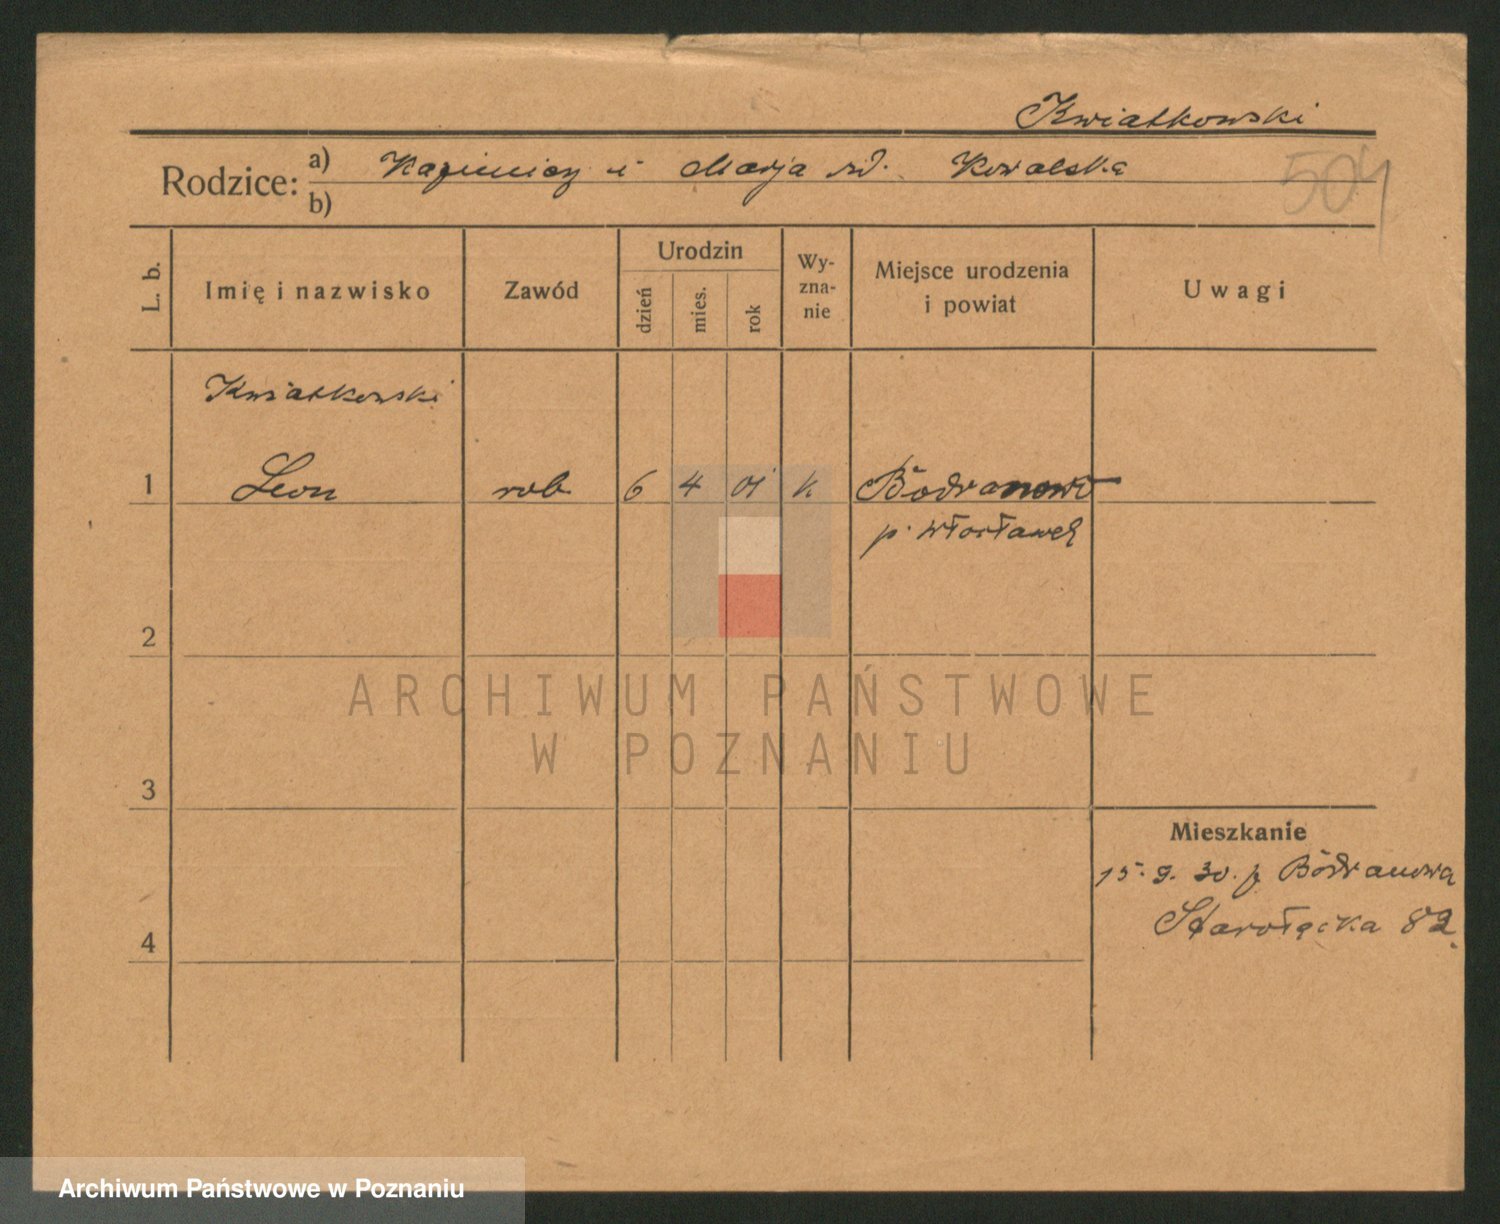 Kwiatkowski
Rodzice: a) Kazimierz i Marja rd. Kowalska
b)
504
L. b.
Imię i nazwisko
Zawód
Urodzin
dzień
mies.
rok
Wy-
zna-
nie
Miejsce urodzenia
i powiat
Uwagi
Kwiatkowski
1 Leon rob 6 4 01 k Bodzanowo
p. Włocławek
2
3
4
Mieszkanie
15.9.30. z Bodzanowa
Starołęcka 82.
ARCHIWUM PAŃSTWOWE
W POZNANIU
Archiwum Państwowe w Poznaniu